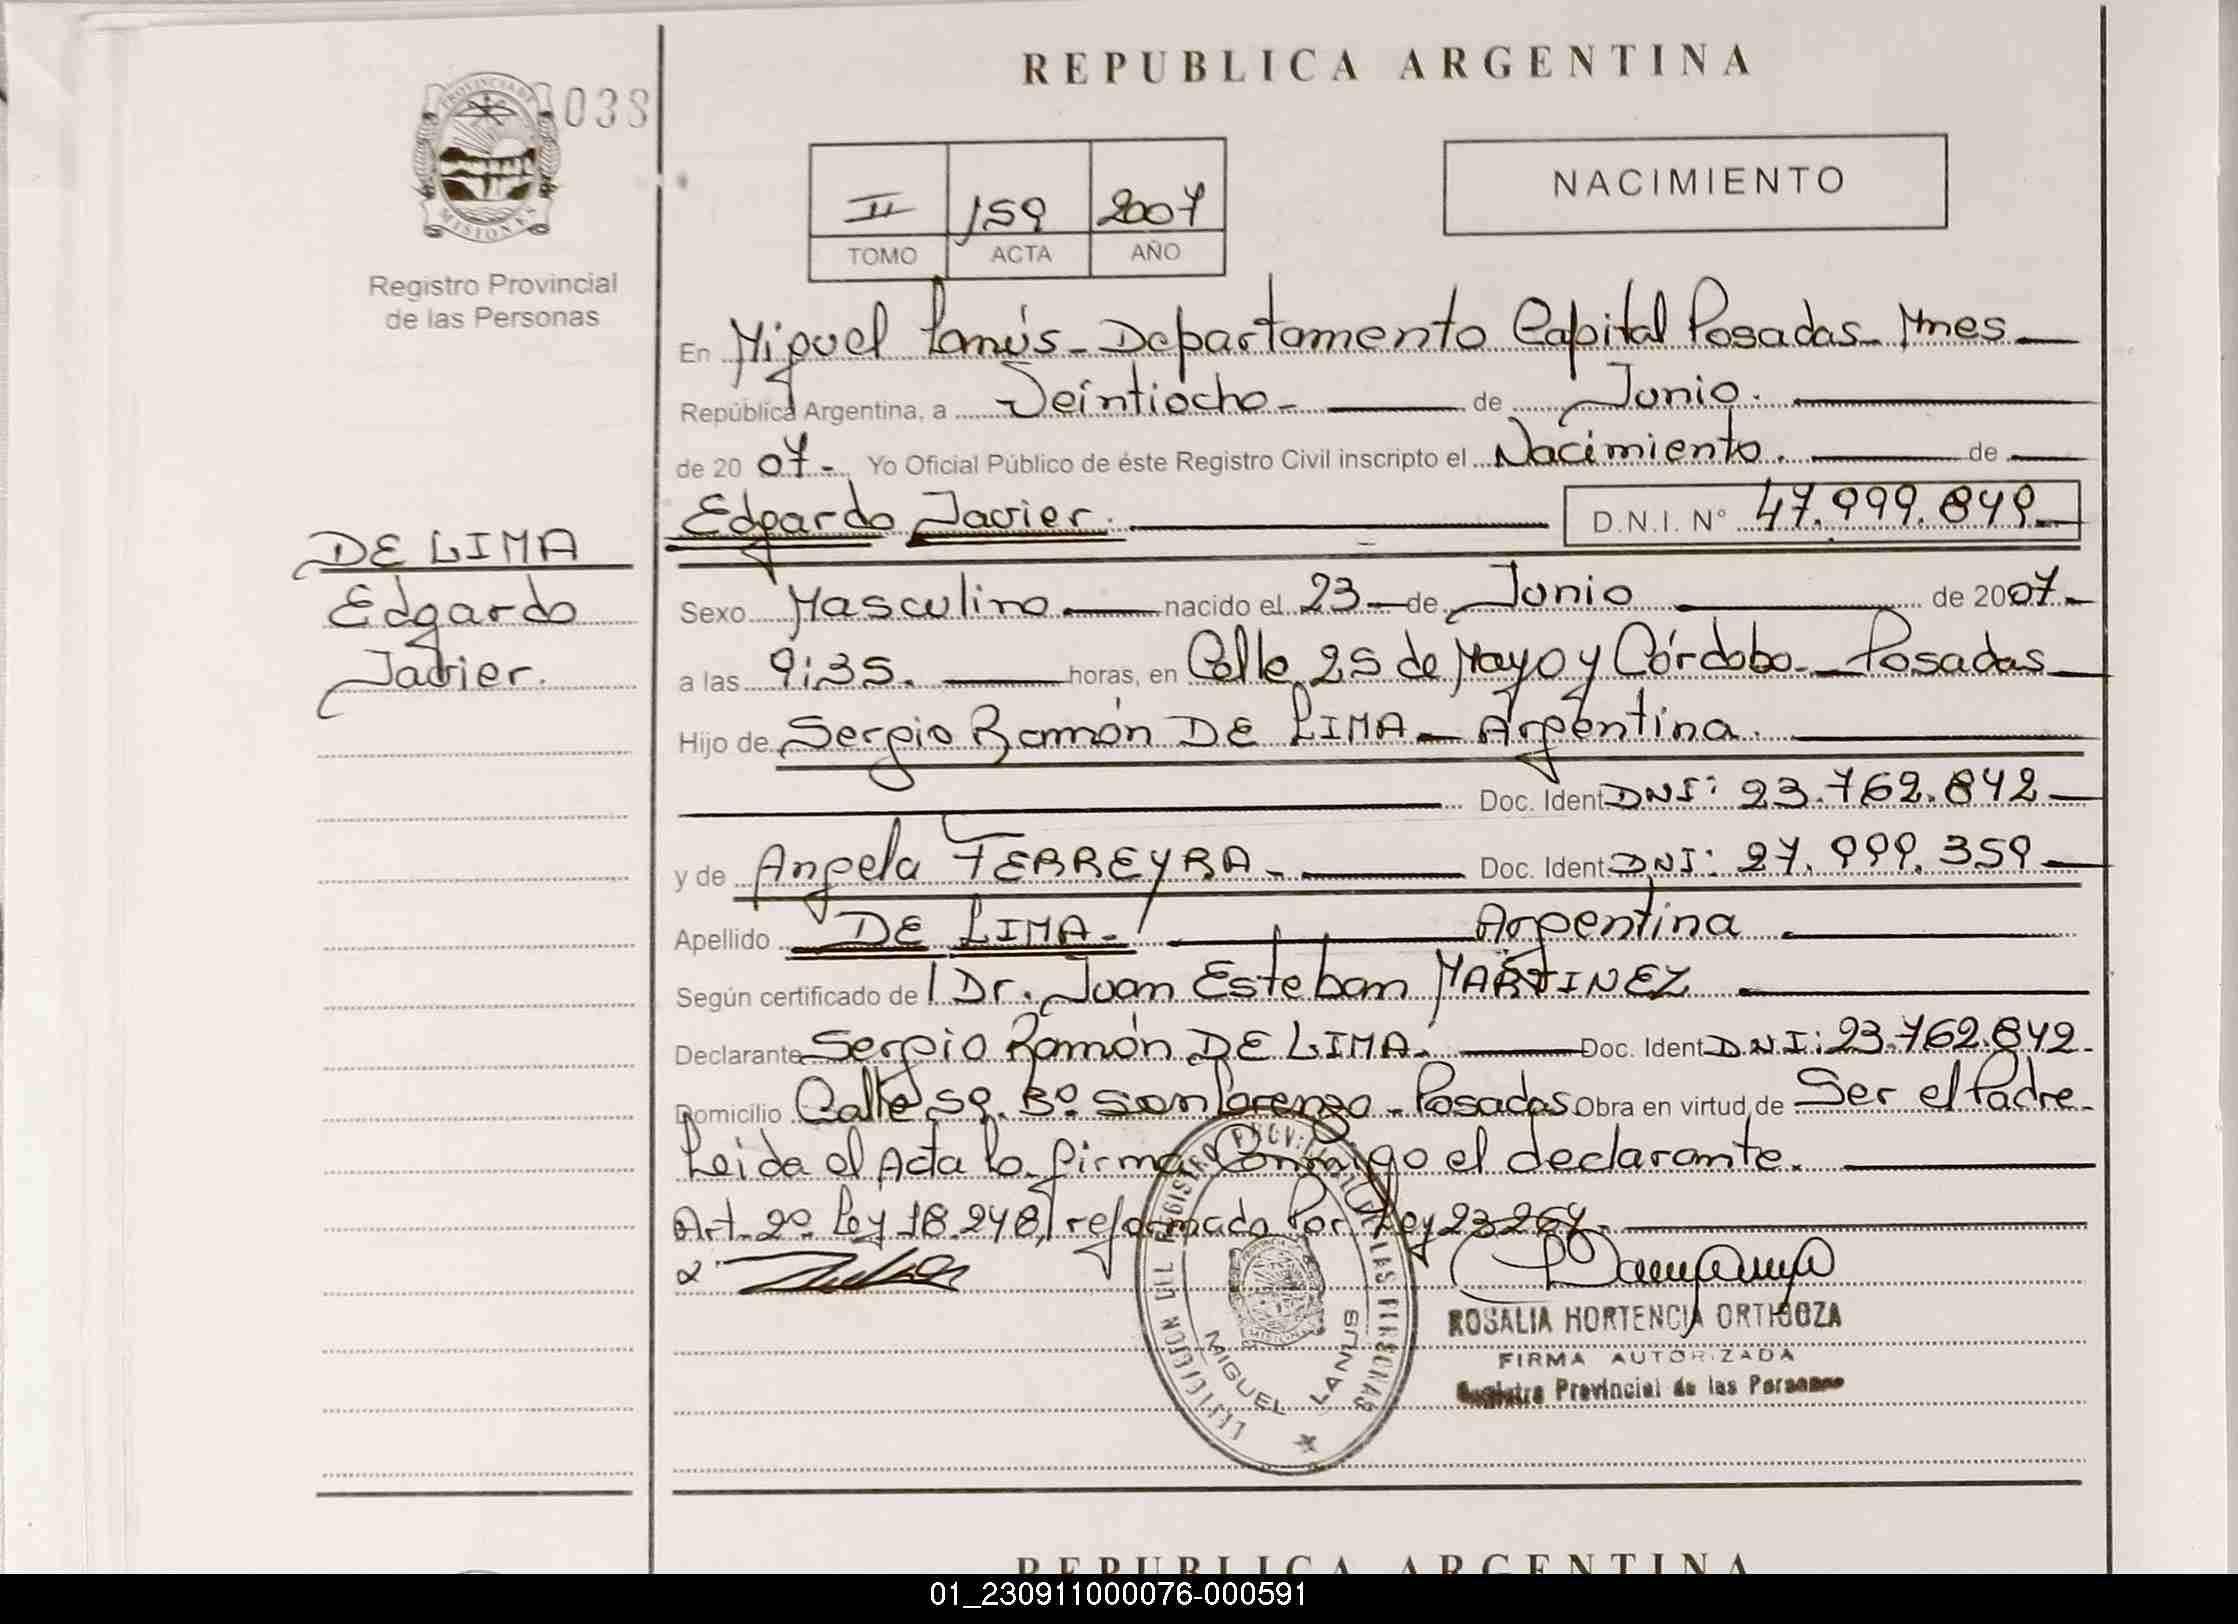 REPUBLICA ARGENTINA
PROVINCIA DE
MISIONES
038
Registro Provincial
de las Personas
NACIMIENTO
II 159 2007
TOMO ACTA AÑO
En Miguel Lanús - Departamento Capital Posadas - Mnes
República Argentina, a Veintiocho - de Junio.
de 2007 - Yo Oficial Público de éste Registro Civil inscripto el Nacimiento. de
Edgardo Javier. D.N.I. N° 47.999.849
DE LIMA
Edgardo
Javier.
Sexo Masculino nacido el 23 de Junio de 2007-
a las 9:35. horas, en Calle 25 de Mayo y Córdoba - Posadas
Hijo de Sergio Ramón DE LIMA - Argentina.
Doc. Ident DNI: 23.762.842
y de Angela FERREYRA - Doc. Ident DNI: 27.999.359
Apellido DE LIMA - Argentina.
Según certificado de l Dr. Juan Esteban MARTINEZ
Declarante Sergio Ramón DE LIMA. Doc. Ident DNI: 23.762.842.
Domicilio Calle 59. B° San Lorenzo - Posadas Obra en virtud de Ser el Padre
Leida el Acta la firma Conmigo el declarante.
Art. 2° Ley 18.248, reformado Por Ley 23264.
ROSALIA HORTENCIA ORTIGOZA
FIRMA AUTORIZADA
Registro Provincial de las Personas
DEL REGISTRO PROVINCIAL DE LAS PERSONAS
MISIONES
MIGUEL LANUS
REPUBLICA ARGENTINA
01_230911000076-000591